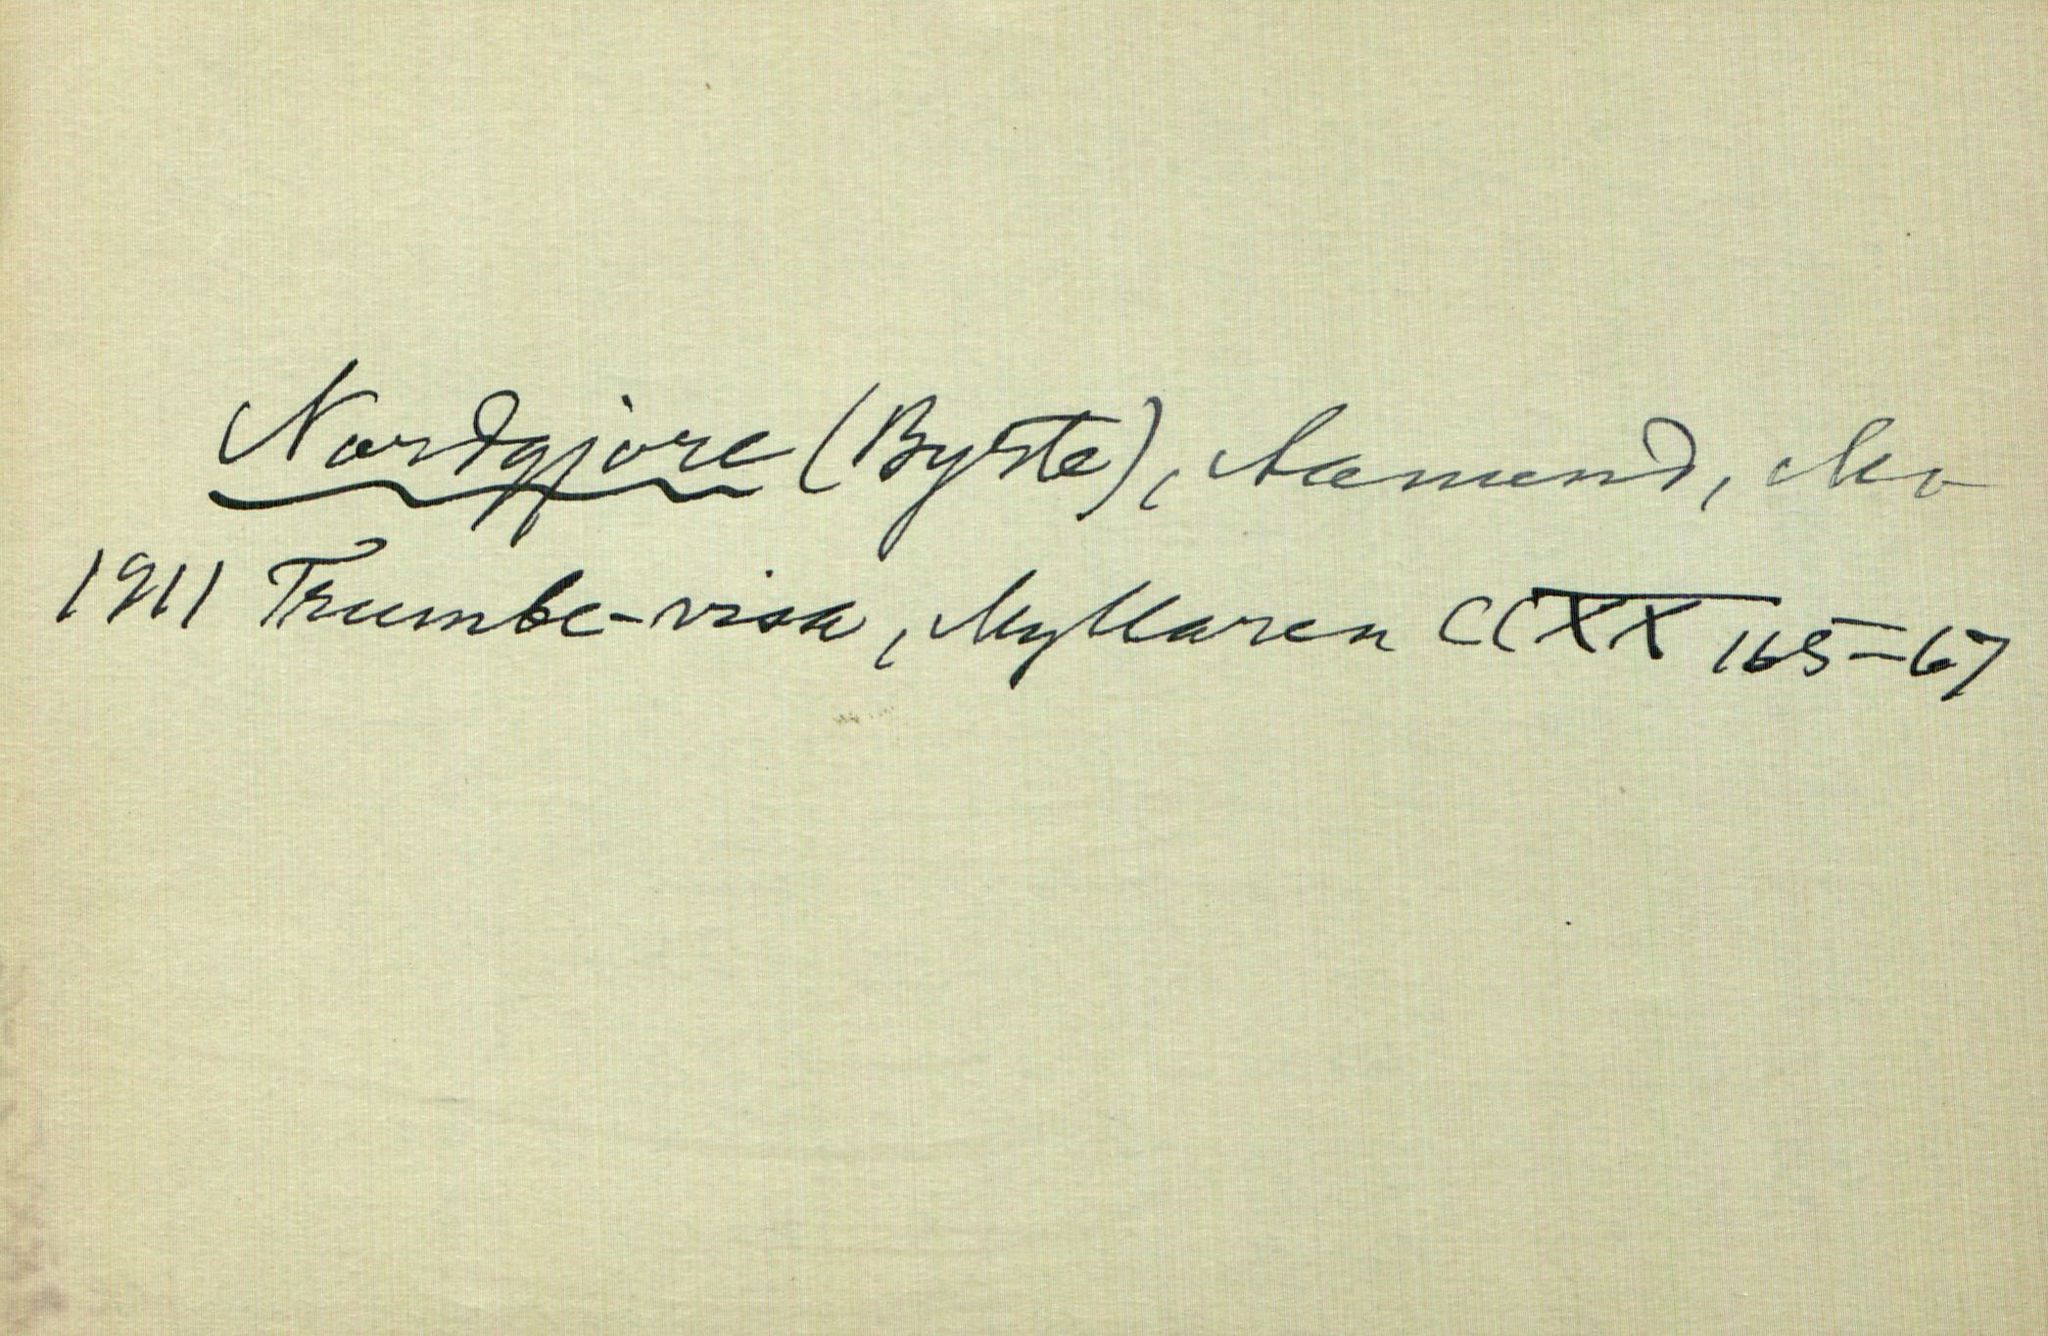 Nordgjore (Byrte), Aamund, Mo
1911 Trumbe-visa, Myllaren CCXX 165-67